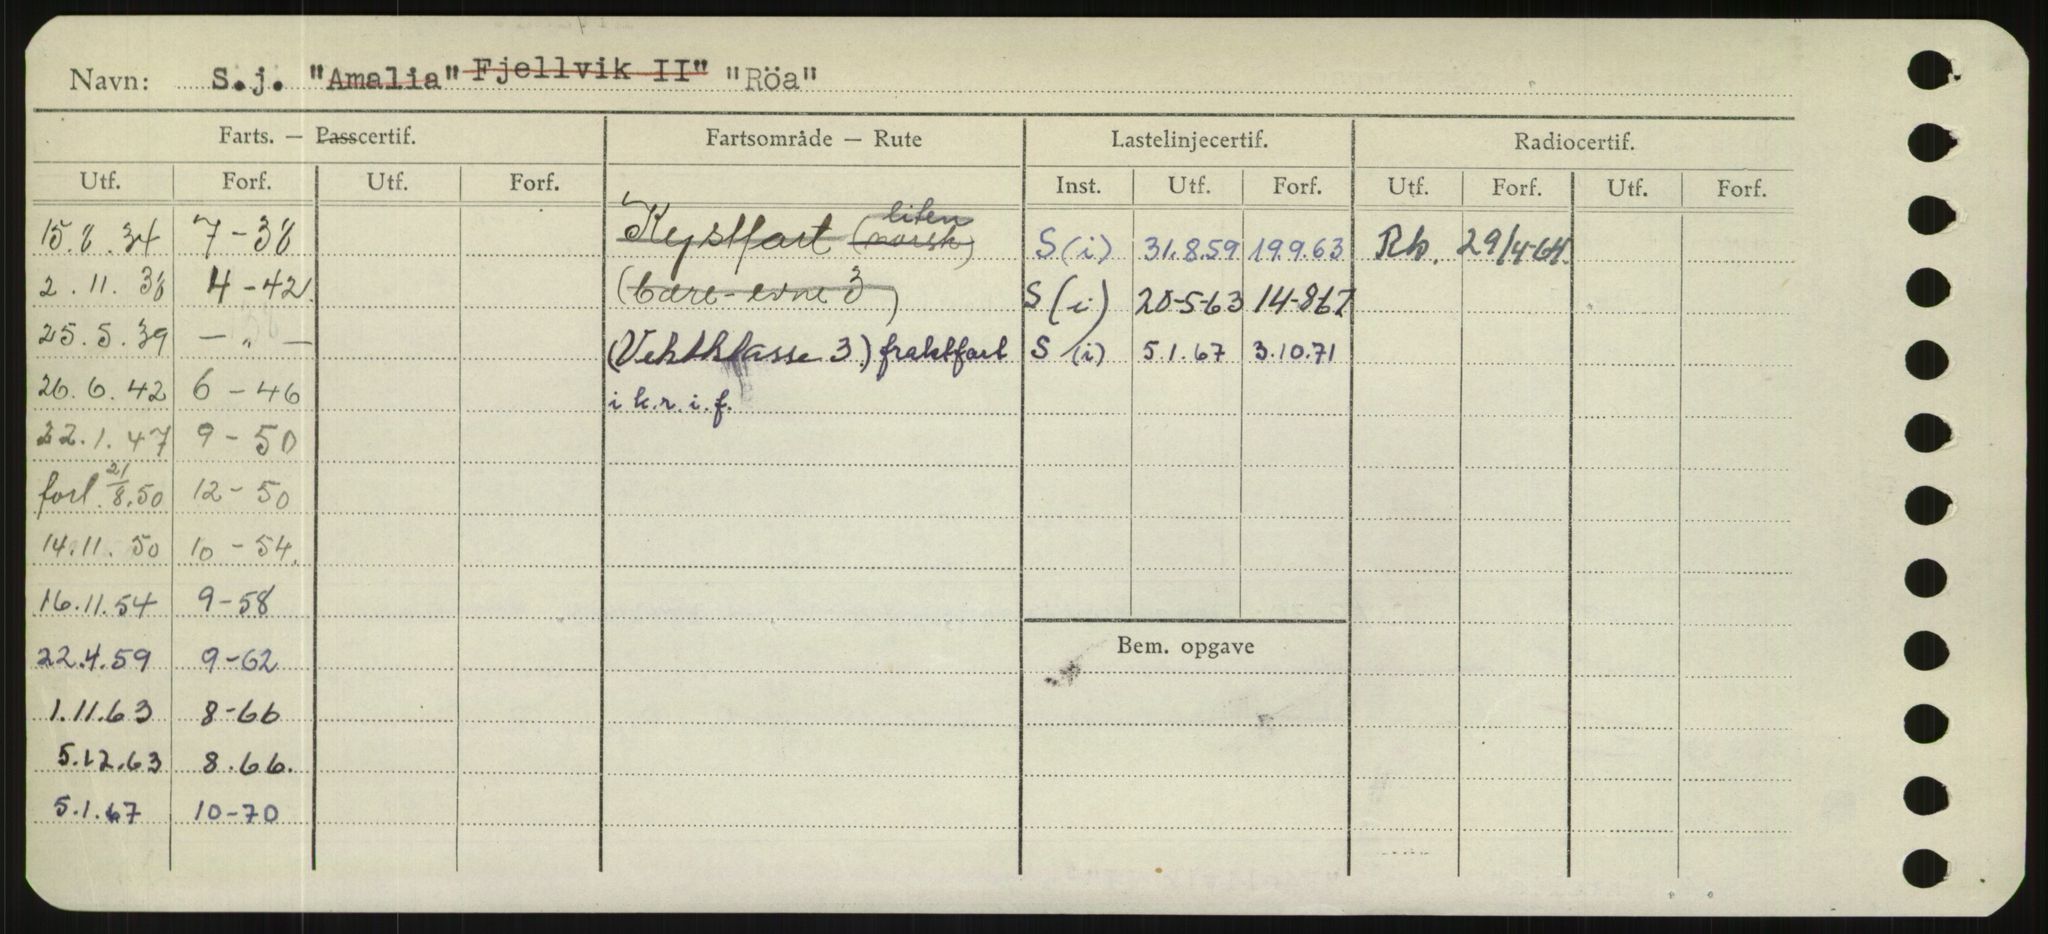 Navn: S.j. "Amalia" Fjellvik II" "Röa"
Farts. — Passcertif. Fartsområde — Rute Lastelinjecertif. Radiocertif.
Utf. Forf. Utf. Forf. Inst. Utf. Forf. Utf. Forf. Utf. Forf.
liten
15.8.34 7-38 Kystfart (norsk) S (i) 31.8.59 19.9.63 Rb. 29/4-64.
2.11.38 4-42. (bære-evne 3) S (i) 20-5-63 14-867
25.5.39 — „ — (Vektklasse 3) fraktfart S (i) 5.1.67 3.10.71
26.6.42 6-46 i k.r.i.f.
22.1.47 9-50
forl. 21/8.50 12-50
14.11.50 10-54.
16.11.54 9-58
22.4.59 9-62
Bem. opgave
1.11.63 8-66
5.12.63 8.66.
5.1.67 10-70